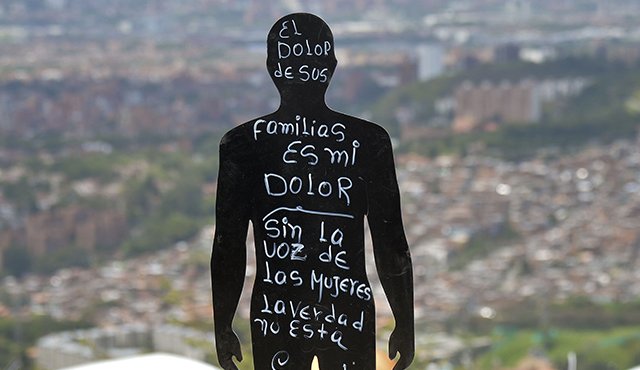 EL
DOLOR
de SUS
Familias
Es mi
DOLOR
Sin la
VOZ de
las Mujeres
La verdad
no Esta